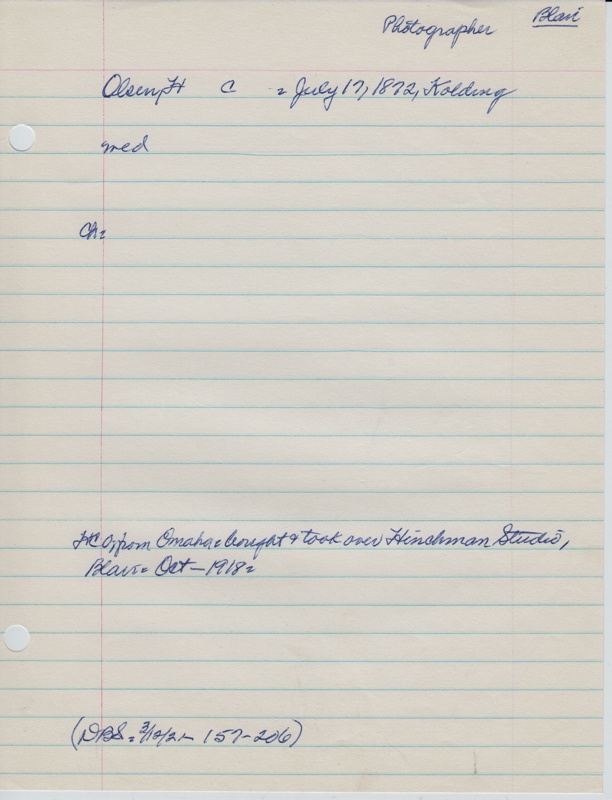 Photographer Blair
Olsen, H C = July 17, 1872, Kolding
med
Ch=
HCO, from Omaha = bought & took over Hinchman Studio,
Blair = Oct - 1918 =
(DBS = 3/12/21 - 157-206)